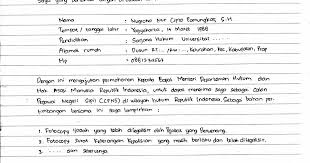 Saya yang
Nama : Nugroho Nur Cipto Pamungkas, S.H
Tempat / tanggal lahir : Yogyakarta, 14 Maret 1988
Pendidikan : Sarjana Hukum Universitas ......
Alamat rumah : Dusun RT.../RW..., Kelurahan, Kec, Kabupaten, Prop
Hp :
Dengan ini mengajukan permohonan kepada Bapak Menteri Departemen Hukum dan
Hak Asasi Manusia Republik Indonesia, untuk dapat menerima saya sebagai Calon
Pegawai Negeri Sipil (CPNS) di wilayah hukum Republik Indonesia. Sebagai bahan per-
timbangan bersama ini saya lampirkan :
1. Fotocopy Ijazah yang telah dilegalisir oleh Pejabat yang Berwenang.
2. Fotocopy Surat Keterangan Kepolisian yang masih berlaku dan telah dilegalisir.
3. ..... dan seterusnya.